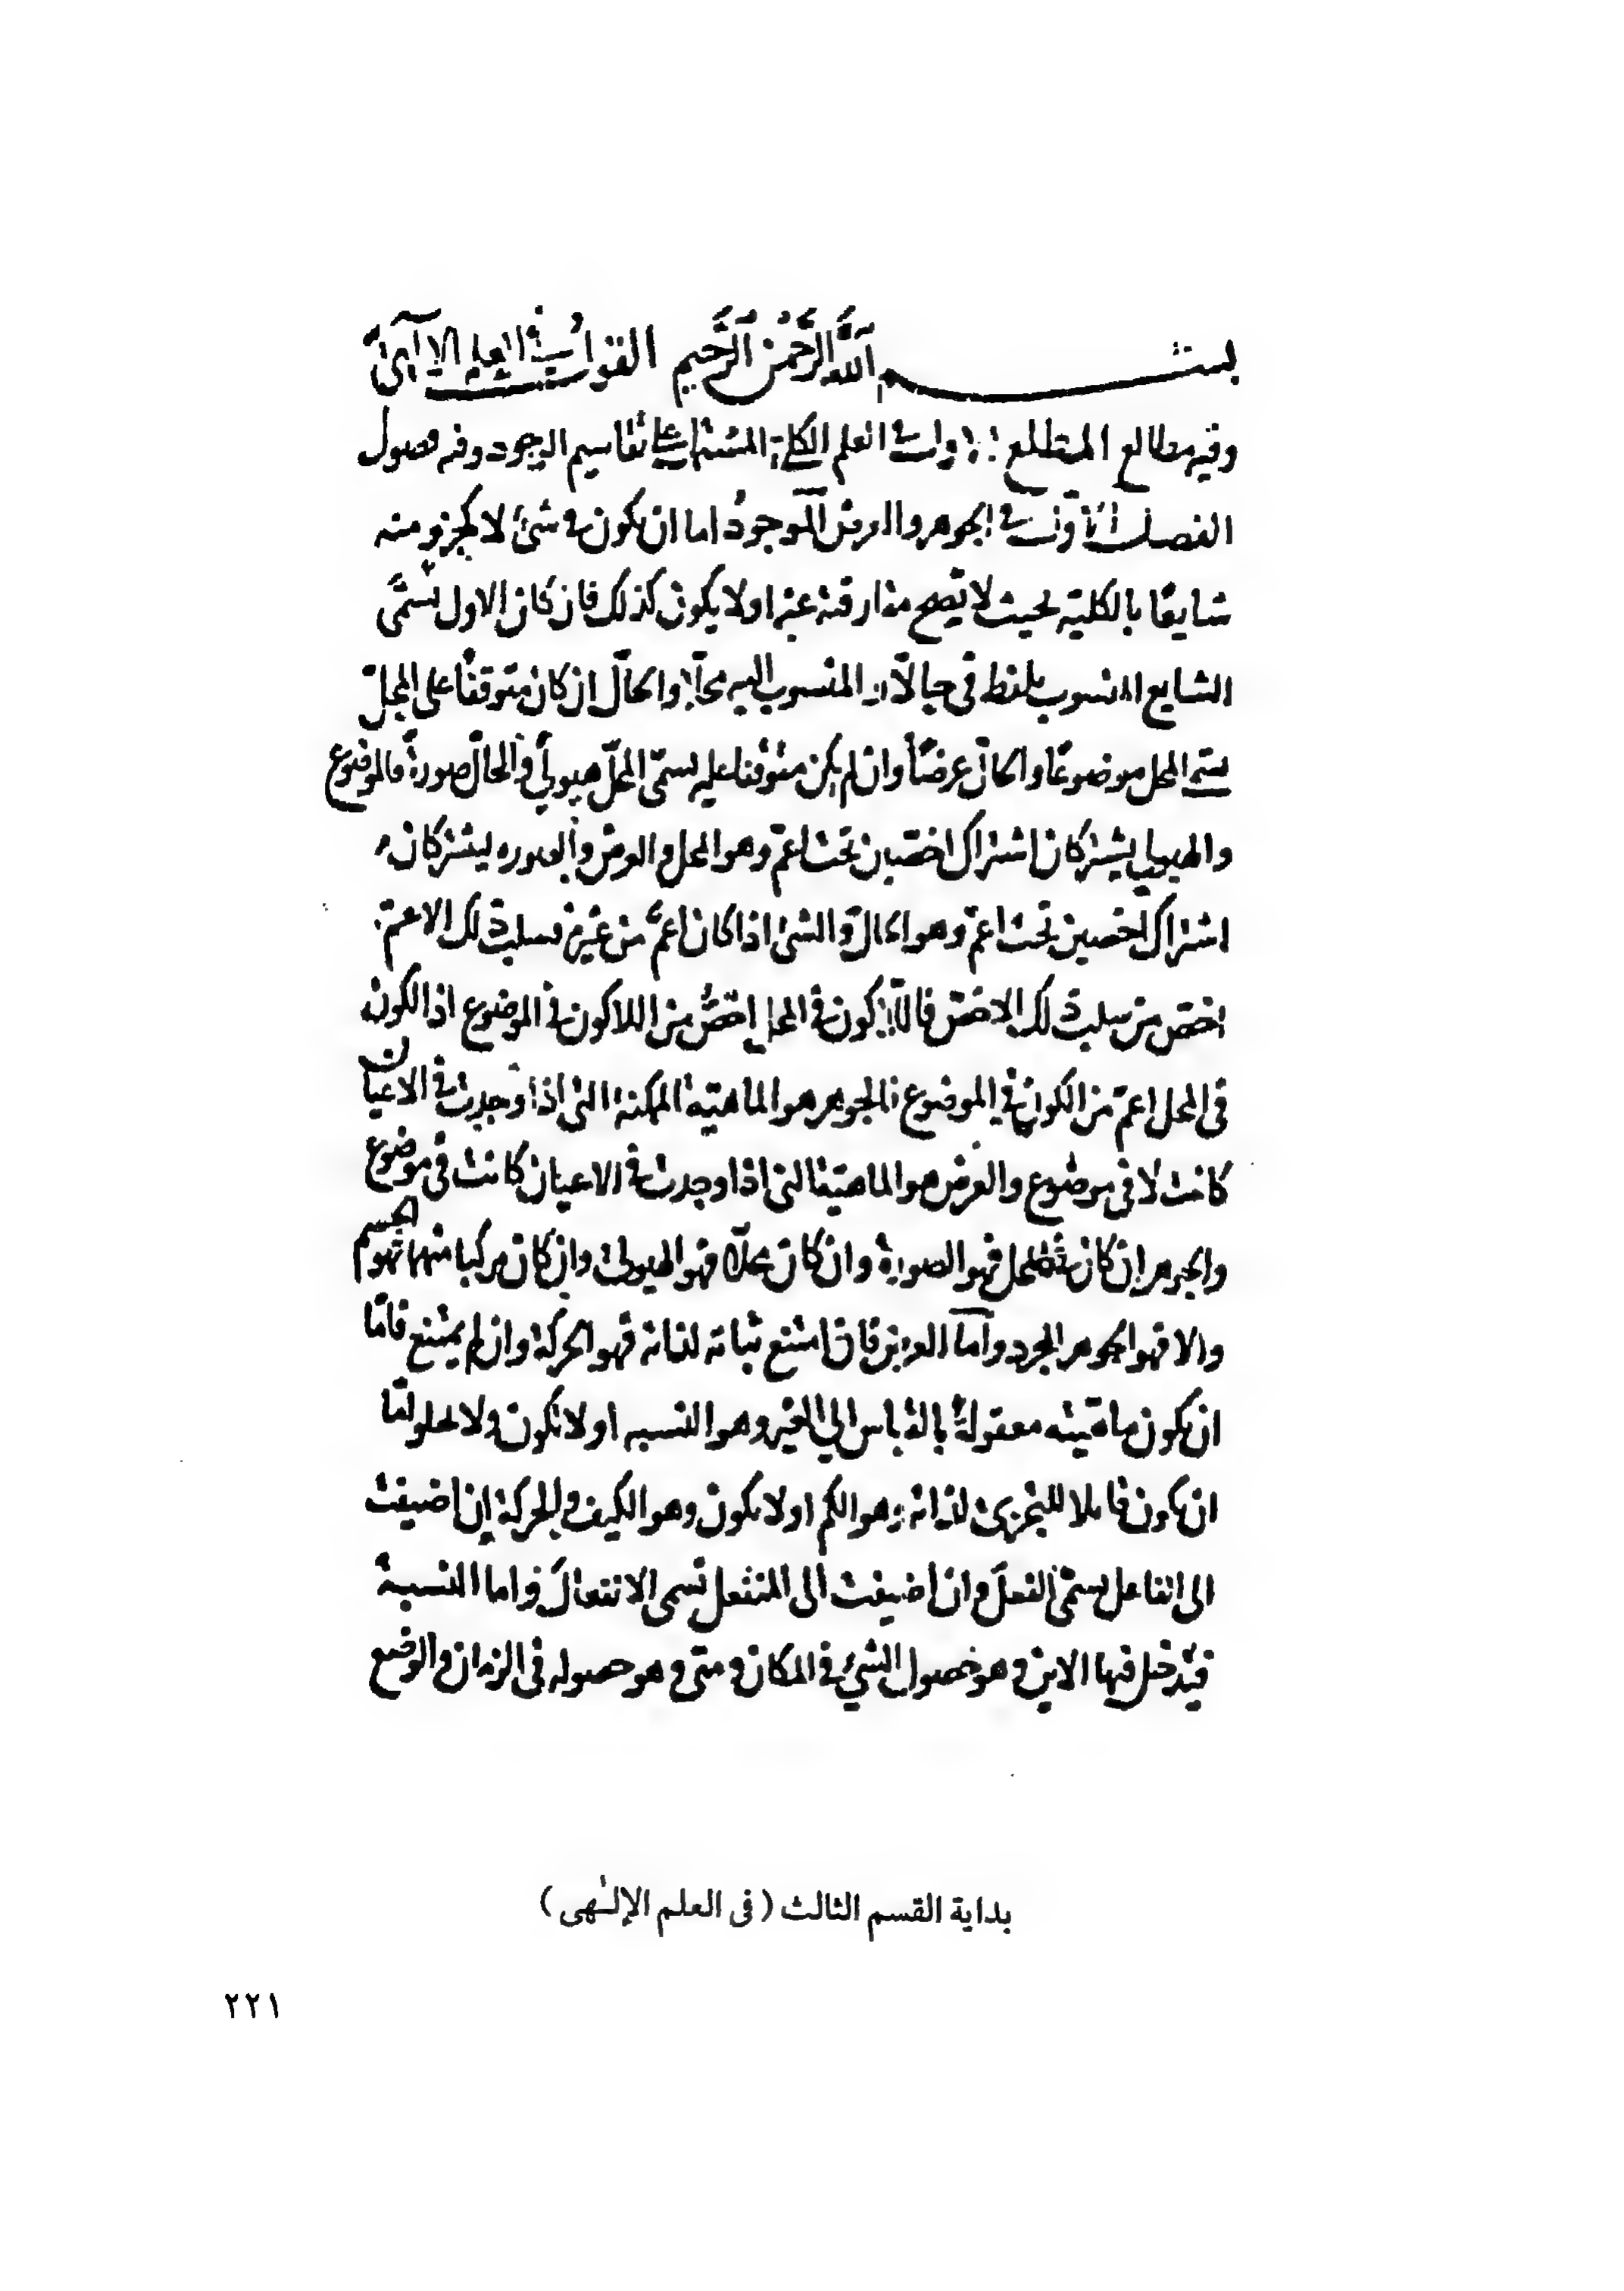 بسم الله الرحمن الرحيم القول في العلم الالهى
وفيه مطالع المطلع الاول في العلم الكلى المشتمل على تقاسيم الوجود وفيه فصول
الفصل الاول في الجوهر والعرض الموجود اما ان يكون في شئ لا كجزو منه
شايعا بالكلية بحيث لا تصح مفارقته عنه او لا يكون كذلك فان كان الاول يسمى
الشايع المنسوب بلفظ فى حالا والمنسوب اليه محلا والحال ان كان متوقفا على المحل
يسمى المحل موضوعا والحال عرضا وان لم يكن متوقفا عليه يسمى المحل هيولى والحال صورة فالموضوع
والهيولى يشتركان اشتراك اخصين تحت اعم وهو المحل والعرض والصوره يشتركان
اشتراك اخصين تحت اعم وهو الحال والشئ اذا كان اعم من غيره فسلب ذلك الاعم
اخص من سلب ذلك الاخص فاللاكون في المحل اخص من اللاكون في الموضوع اذ الكون
فى المحل اعم من الكون في الموضوع فالجوهر هو الماهية الممكنة التى اذا وجدت في الاعيان
كانت لا فى موضوع والعرض هو الماهية التى اذا وجدت في الاعيان كانت فى موضوع
والجوهر ان كان في محل فهو الصورة وان كان محلا فهو الهيولى وان كان مركبا منهما فهو الجسم
والا فهو الجوهر المجرد واما العرض فان امتنع ثباته لذاته فهو الحركة وان لم يمتنع فاما
ان يكون ماهيته معقولة بالقياس الى الغير وهو النسبه او لا تكون ولا يخلو اما
ان يكون قابلا للتجزى لذاته وهو الكم او لا يكون وهو الكيف والحركة ان اضيفت
الى الفاعل يسمى الفعل وان اضيفت الى المنفعل تسمى الانفعال واما النسبة
فيدخل فيها الاين وهو حصول الشئ في المكان ومتى وهو حصوله فى الزمان والوضع
بداية القسم الثالث (فى العلم الإلٰهى)
٢٢١